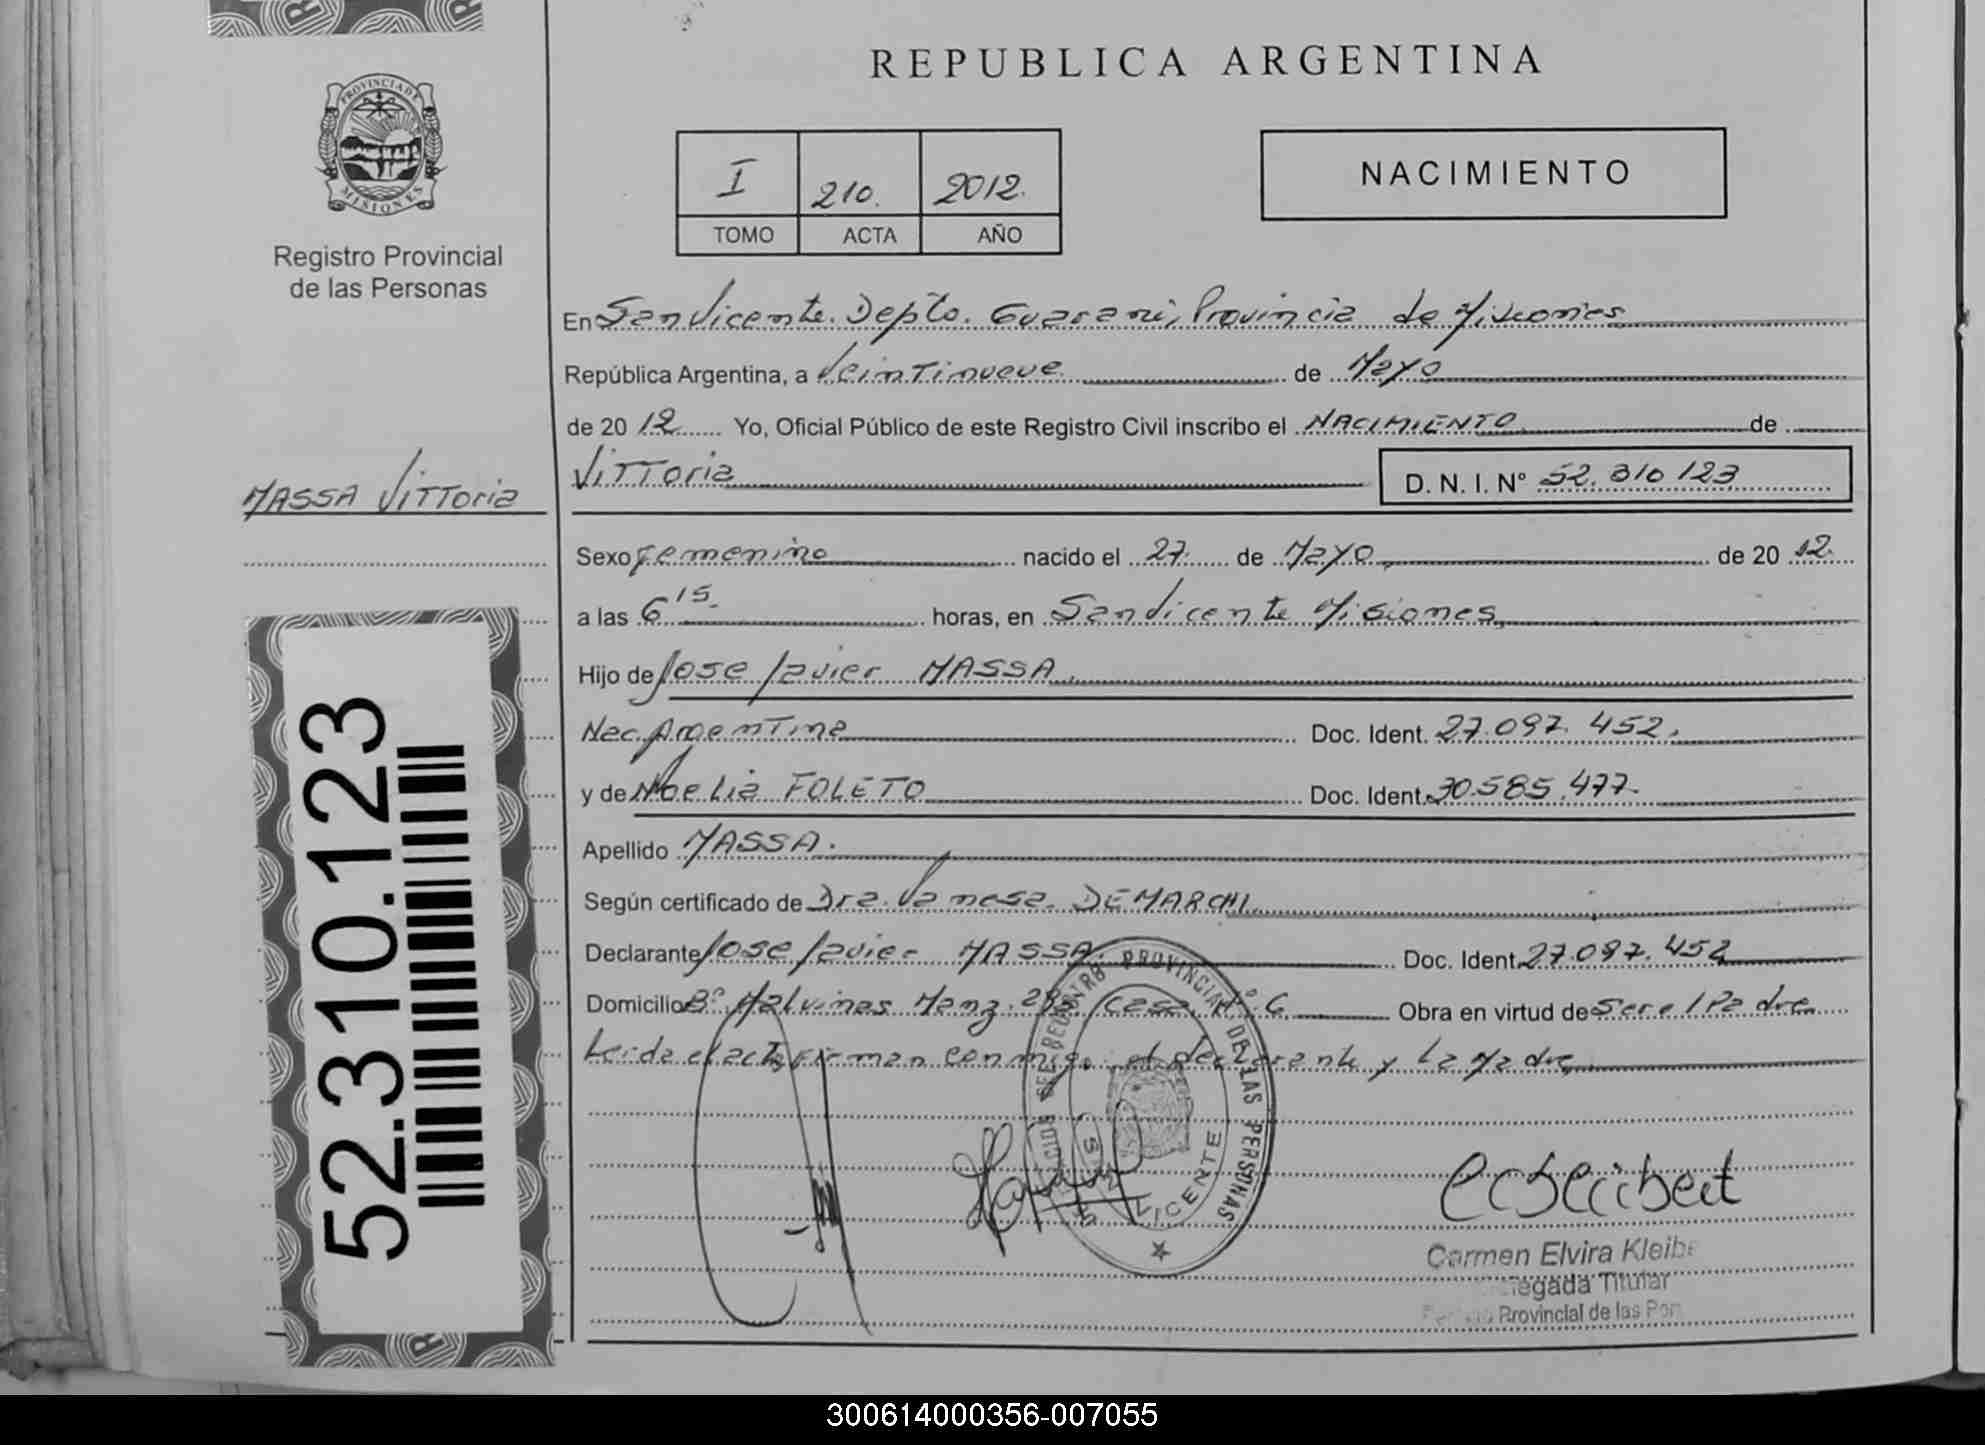 REPUBLICA ARGENTINA
PROVINCIA DE
MISIONES
Registro Provincial
de las Personas
I 210. 2012.
TOMO ACTA AÑO
NACIMIENTO
En San Vicente. Depto. Guarani, Provincia de Misiones
República Argentina, a Veintinueve de Mayo
de 20 12 Yo, Oficial Público de este Registro Civil inscribo el NACIMIENTO de
Vittoria D. N. I. N° 52.310 123
MASSA Vittoria
Sexo femenino nacido el 27 de Mayo de 20 12.
a las 6 15. horas, en San Vicente Misiones
Hijo de Jose Javier MASSA
Nac. Argentina Doc. Ident. 27.097.452.
y de Noelia FOLETO Doc. Ident. 30.585.477.
Apellido MASSA.
Según certificado de Dra. Vanesa. DEMARCHI
Declarante Jose Javier MASSA. Doc. Ident. 27.097.452
Domicilio B° Malvinas Manz. Casa N° 6 Obra en virtud de Ser el Padre
Leida el acta firman conmigo el declarante y la Madre
52.310.123
PROVINCIAL DE LAS PERSONAS
SAN VICENTE
Carmen Elvira
Titular
Provincial de las
300614000356-007055